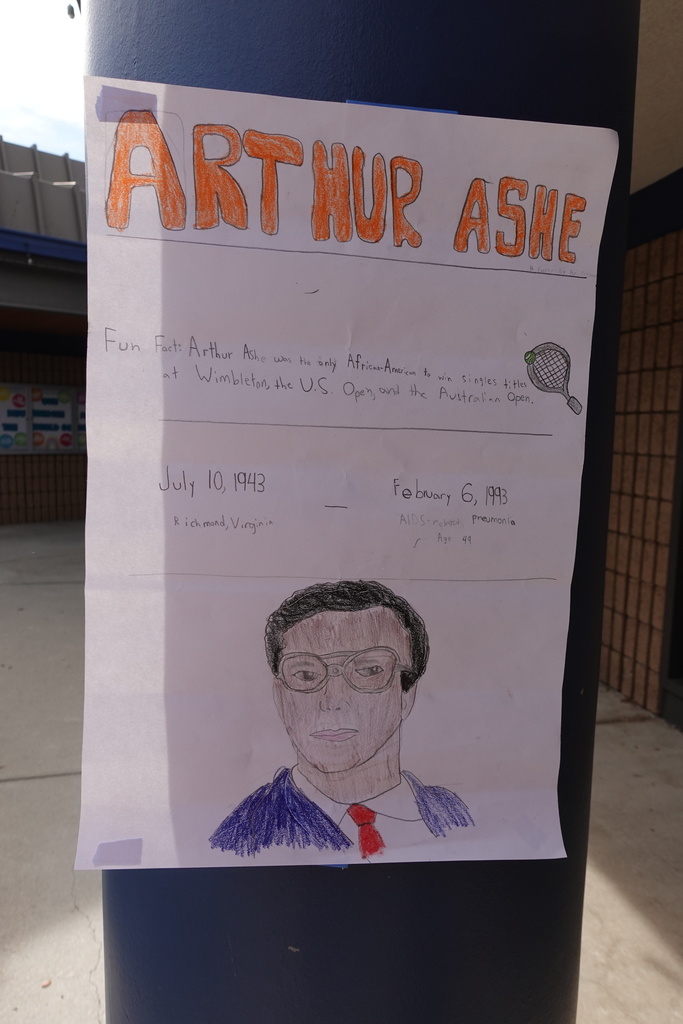 ARTHUR ASHE
Fun Fact: Arthur Ashe was the only African-American to win singles titles
at Wimbleton, the U.S. Open, and the Australian Open.
July 10, 1943 — February 6, 1993
Richmond, Virginia
AIDS-related pneumonia
Age 49